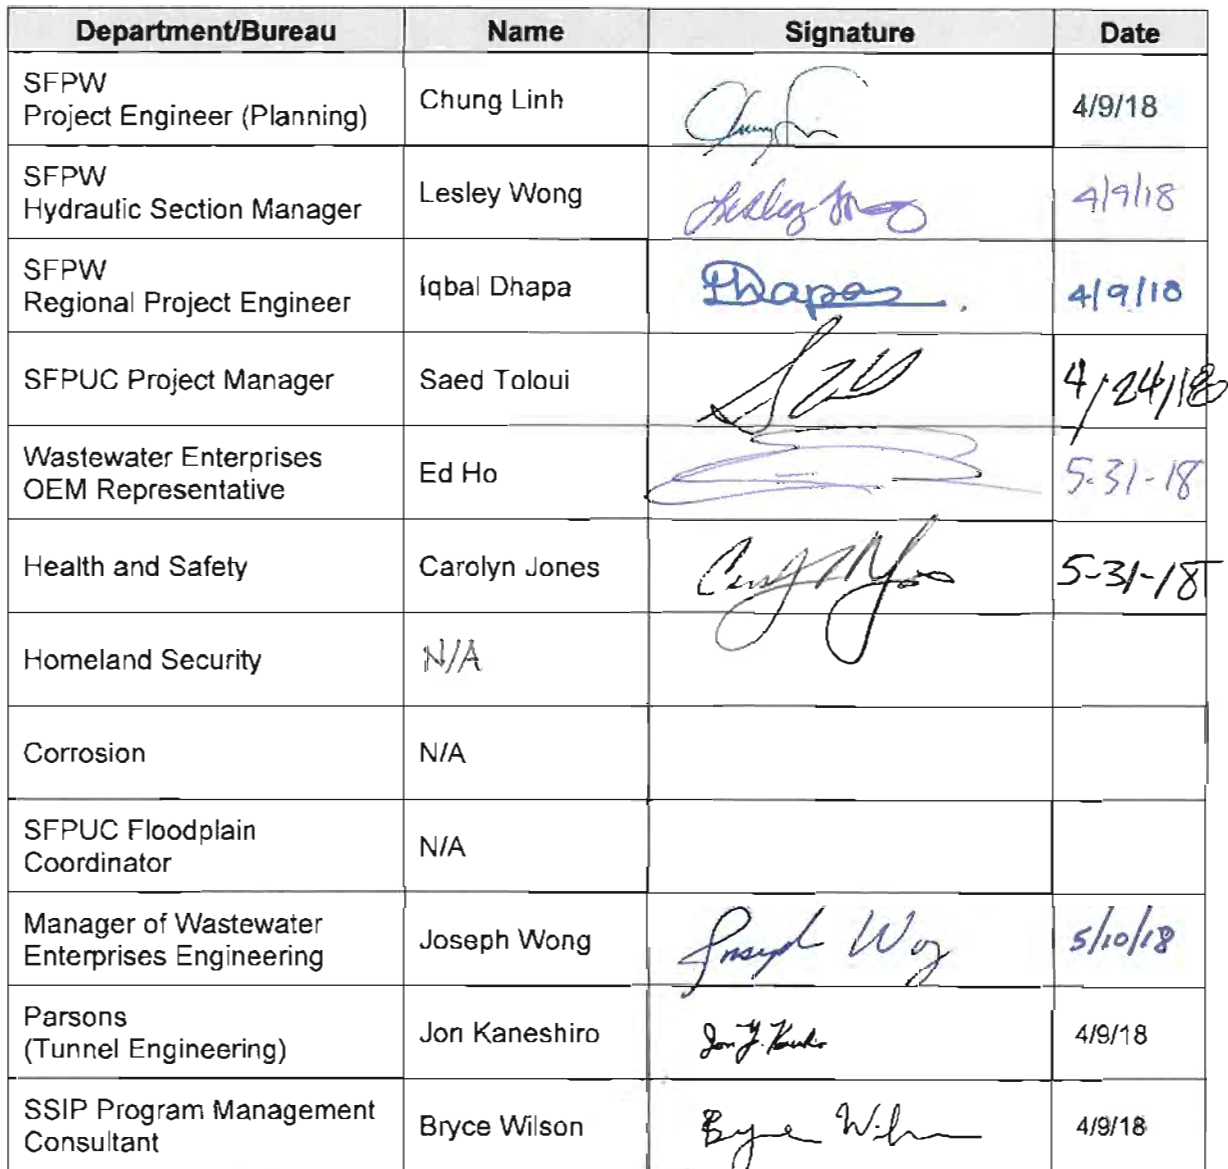 Department/Bureau Name Signature Date
SFPW
Project Engineer (Planning) Chung Linh 4/9/18
SFPW
Hydraulic Section Manager Lesley Wong Lesley Wong 4/9/18
SFPW
Regional Project Engineer Iqbal Dhapa 4/9/18
SFPUC Project Manager Saed Toloui 4/24/18
Wastewater Enterprises
OEM Representative Ed Ho 5-31-18
Health and Safety Carolyn Jones 5-31-18
Homeland Security N/A
Corrosion N/A
SFPUC Floodplain
Coordinator N/A
Manager of Wastewater
Enterprises Engineering Joseph Wong Joseph Wong 5/10/18
Parsons
(Tunnel Engineering) Jon Kaneshiro 4/9/18
SSIP Program Management
Consultant Bryce Wilson 4/9/18